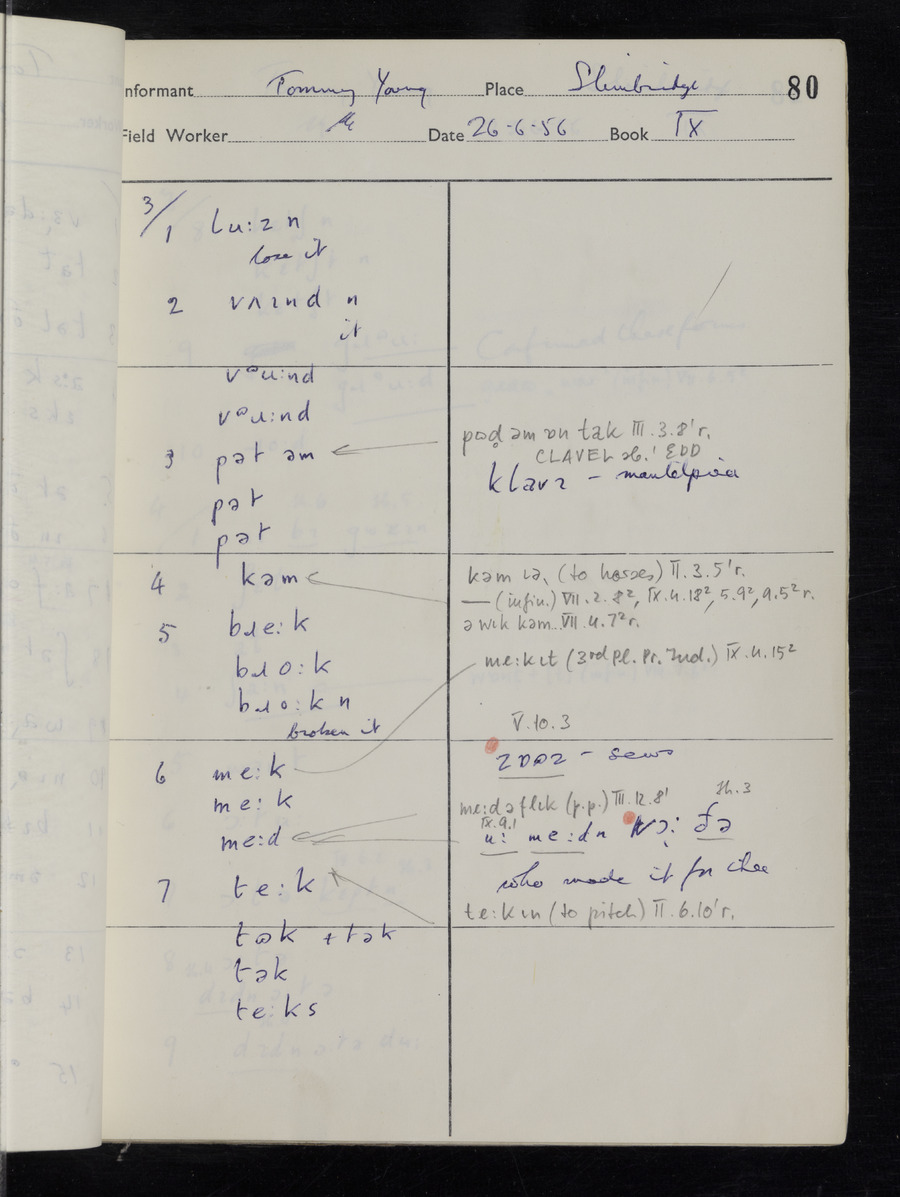 Informant Tommy Young Place Slimbridge 80
Field Worker Date 26-6-56 Book IX
3/1 lu:z n
lose it
2 vʌɪnd n
it
vᵊu:nd
vᵊu:nd
3 pət əm
pət
pət
pɒd̥ əm ɒn tak III.3.8' r.
CLAVEL sb.¹ EDD
klavɪ – mantelpiece
4 kəm
5 bɹe:k
bɹo:k
bɹo:k n
broken it
kəm (to horses) II.3.5' r.
— (infin.) VII.2.8², IX.4.18², 5.9², 9.5² r.
ə wik kəm.. VII.4.7² r.
me:kɪt (3rd Pl. Pr. Ind.) IX.4.15²
V.10.3
6 me:k
me:k
me:d
zɒəz – sews
me:d ə flɪk (p.p.) III.12.8'
IX.9.1 Sh.3
u: me:dn vɔ: ðə
who made it for thee
7 te:k
tɷk + tək
tək
te:ks
te:k ɪn (to pitch) II.6.10' r.